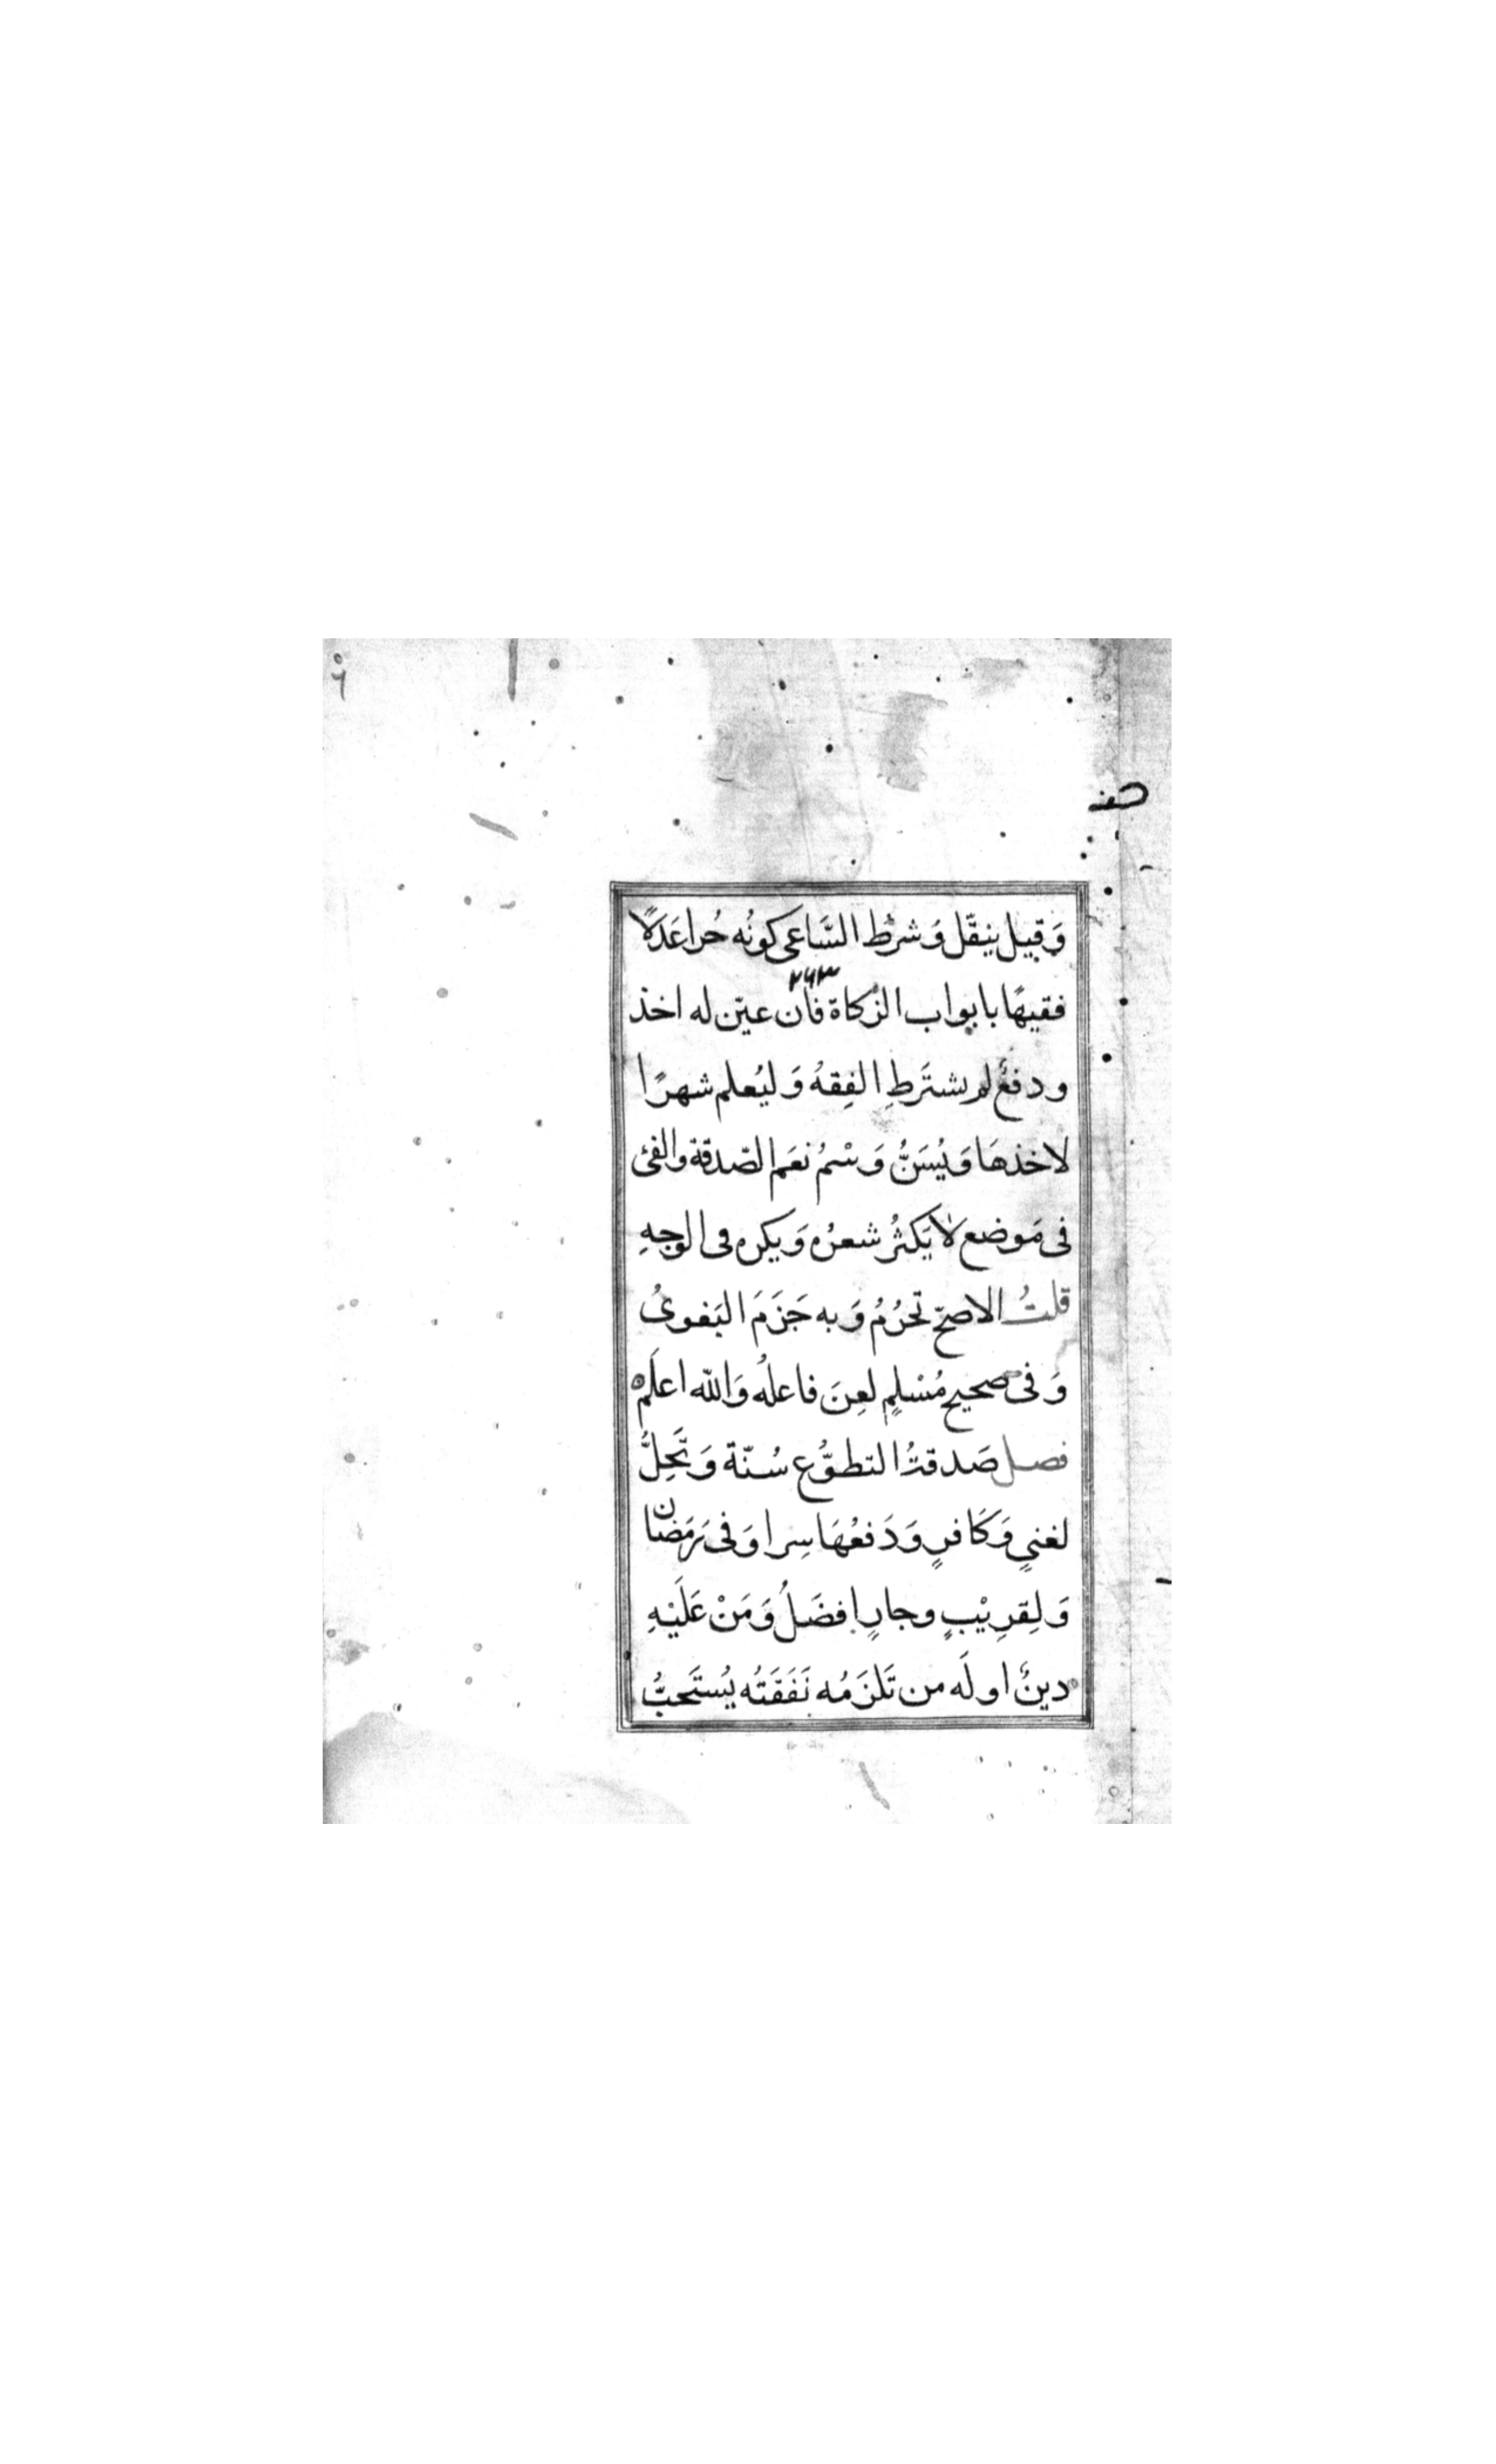 وَقيل ينقّل وَشرط السَّاعى كونُه حُرا عَدلًا
٢٦٣
فقيهًا بابواب الزكاة فان عيّن له اخذ
ودفعٌ لم يشترَطِ الفِقهُ وَليُعلم شهرًا
لاخذهَا وَيُسَنُّ وَسْمُ نعَم الصّدقة والفئ
فى مَوضع لا يَكثرُ شعرُه وَيكره فى الوجهِ
قلتُ الاصحّ تحرُمُ وَبه جَزَمَ البَغوىُ
وَفى صحيح مُسْلمٍ لعِنَ فاعلُه وَالله اعلَم
فصل صَدقتُ التطوّع سُنّة وَتَحِلُّ
لغنيٍ وَكَافرٍ وَدَفعُهَا سِرا وَفى رَمَضان
وَلِقرِيْبٍ وجارٍ افضَلُ وَمَنْ عَلَيْهِ
دينٌ او لَه من تَلزَمُه نَفَقَتُه يُستَحبُّ